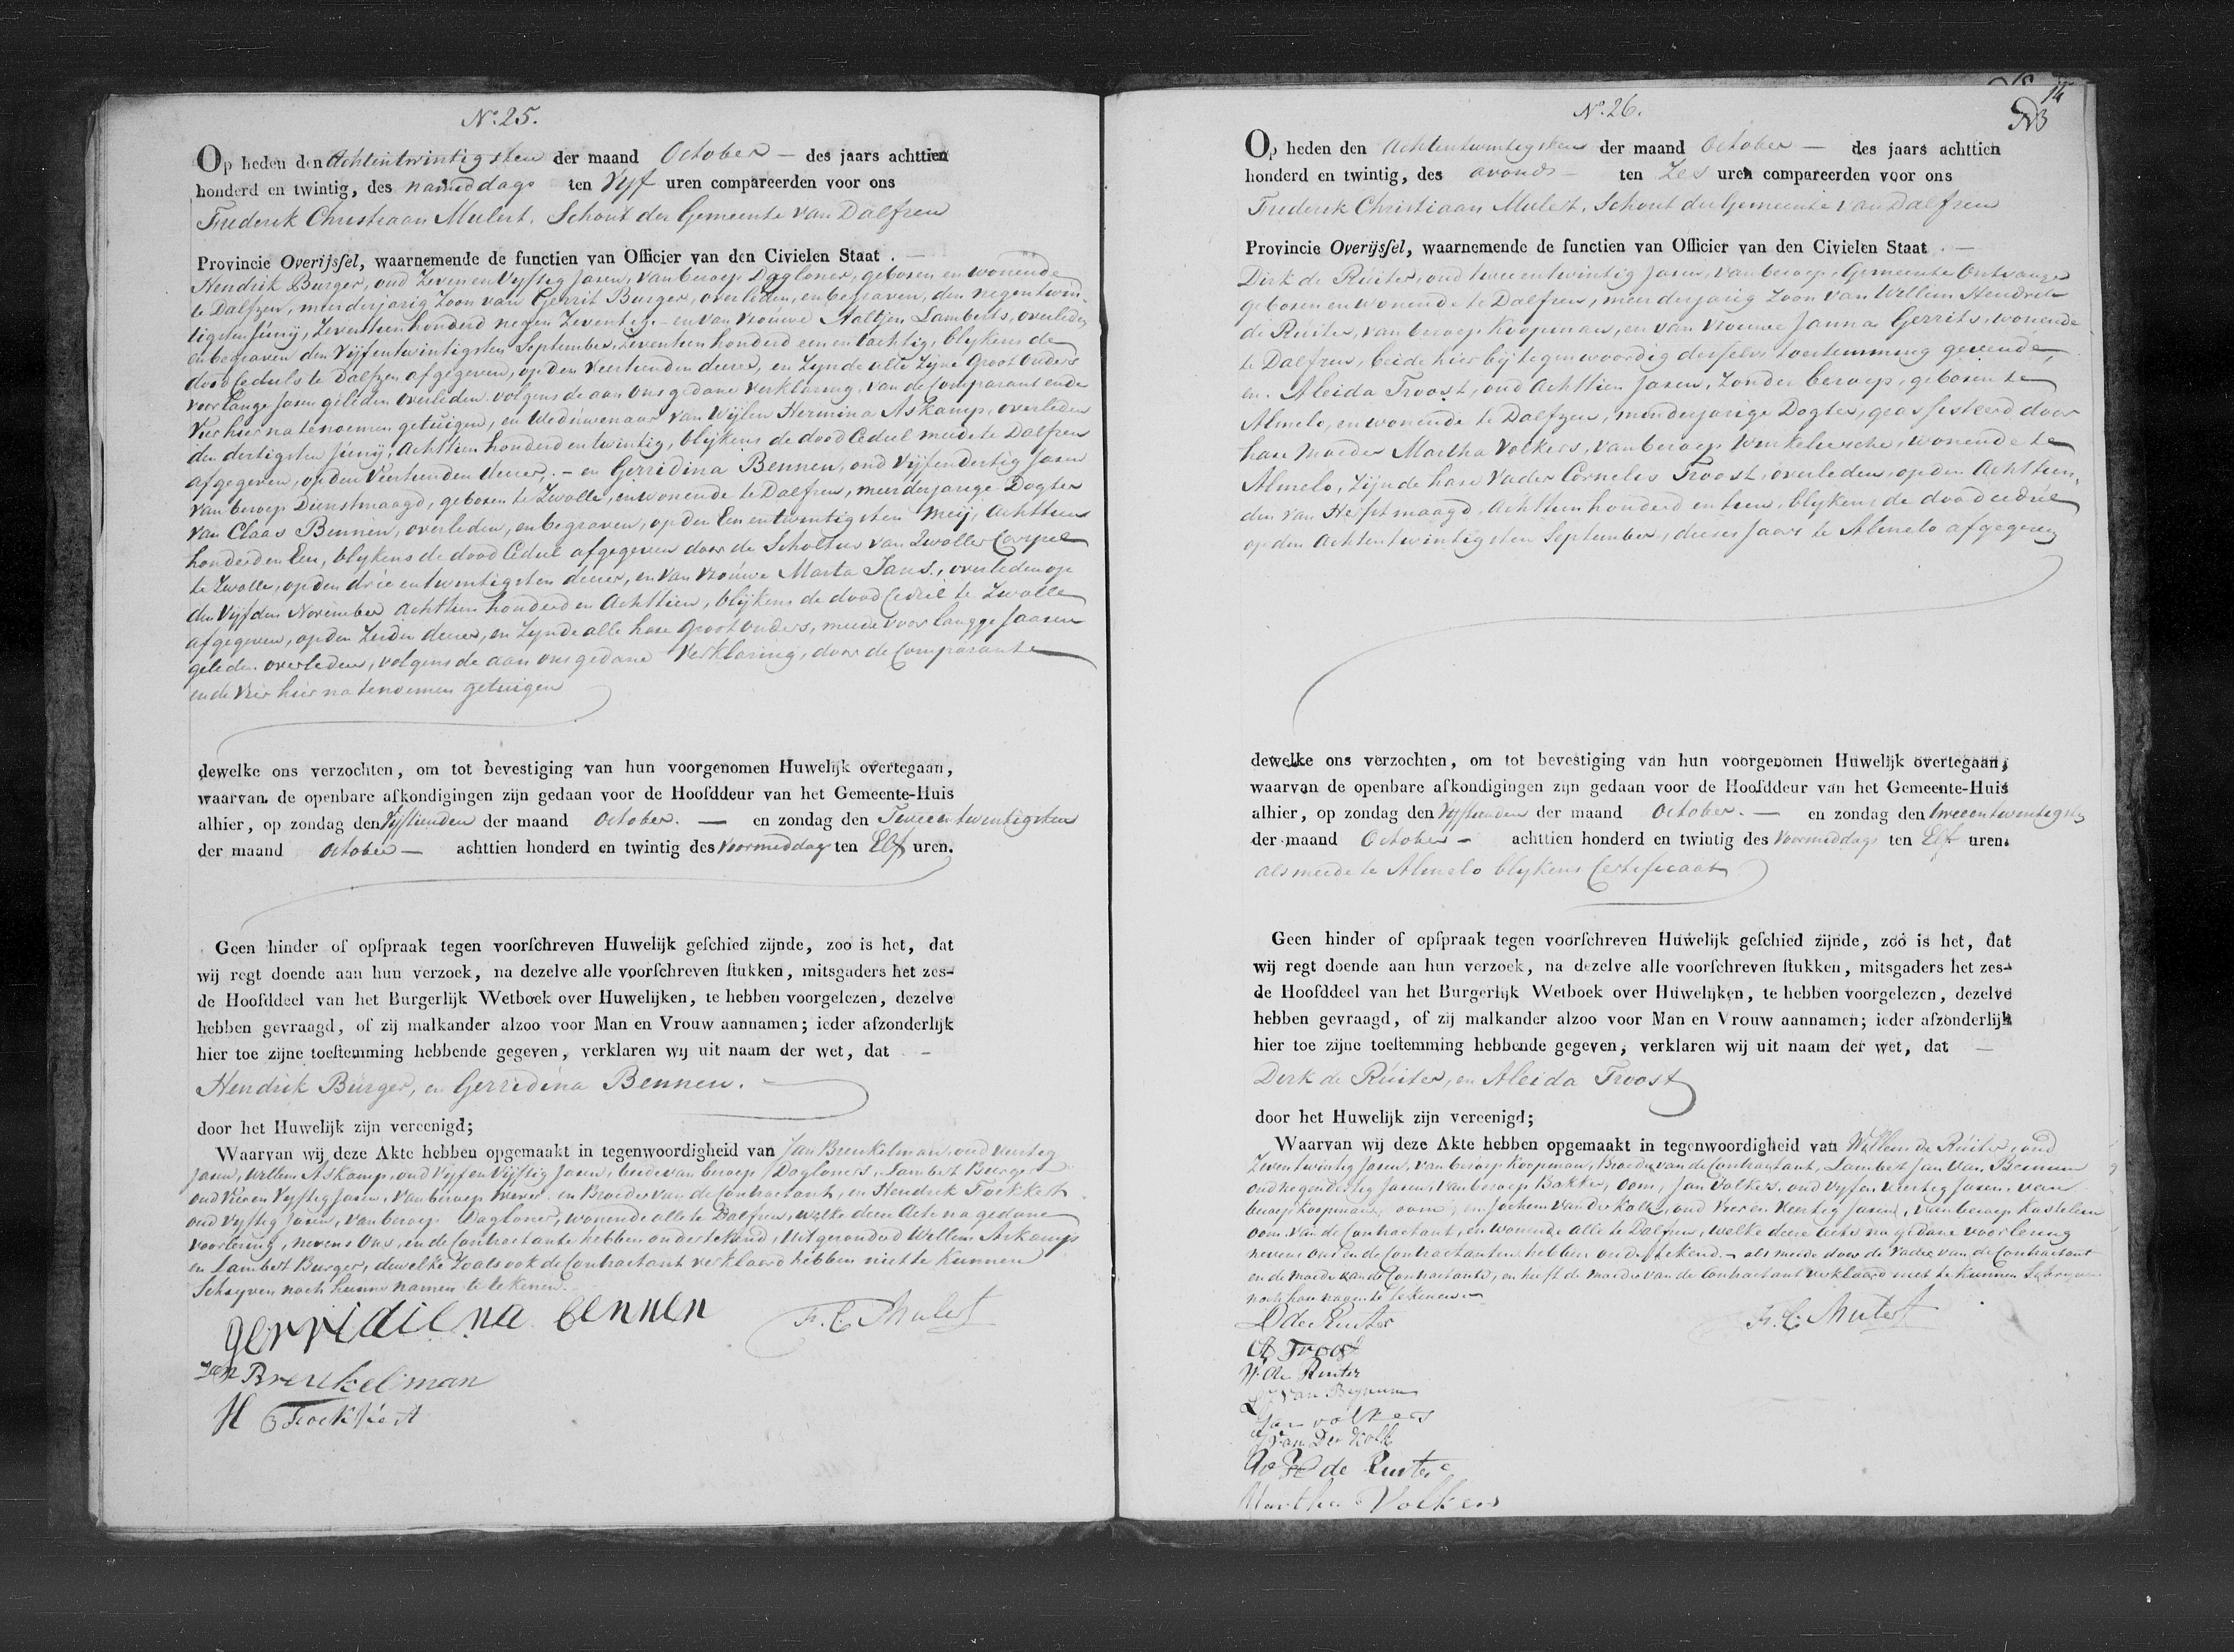 No. 25.
Op heden den Achtentwintigsten der maand October — des jaars achttien
honderd en twintig, des nameddags ten Vyf uren compareerden voor ons
Frederik Christiaan Mulert, Schout der Gemeente van Dalfsen
Provincie Overijsfel, waarnemende de functien van Officier van den Civielen Staat. —
Hendrik Burger, oud Zeven en Vyftig Jaren, van beroep Dagloner, geboren en wonende
te Dalfzen, meerderjarig Zoon van Gerrit Burger, overleden, en begraven, den negentwin-
tigsten Junij, Zeventienhonderd negen Zeventig, - en van Vrouwe Aaltjen Lamberts, overleden
en begraven den Vijfentwintigsten September, Zeventien honderd een en tachtig, blykens de
dood Ceduls te Dalfzen afgegeven, op den Veertienden dezer, en Zynde alle Zyne Groot Ouders
voor lange Jaren geleden overleden, volgens de aan ons gedane Verklaring, van de Comparant en de
Vier hier na te noemen getuigen, en Weduwenaar van Wylen Hermina Askamp, overleden
den dertigsten Junij, Achttien honderd en twintig, blijkens de dood Cedul meede te Dalfsen
afgegeven, op den Veertienden dezer; - en Gerridina Bennen, oud Vijfendertig Jaren
van beroep Dienstmaagd, geboren te Zwolle, en wonende te Dalfsen, meerderjarige Dogter
van Claas Bennen, overleden, en begraven, op den Een en twintigsten Meij, Achttien
honderd en Een, blykens de dood Cedul afgegeven door de Scholtus van Zwoller Carspel
te Zwolle, op den drie en twintigsten dezer, en van Vrouwe Marta Jans., overleden op
den Vyfden November Achttien honderd en Achttien, blijkens de dood Cedul te Zwolle
afgegeven, op den Zesden dezer, en Zynde alle hare Groot Ouders, meede voor lange Jaaren
geleden overleden, volgens de aan ons gedane Verklaring, door de Comparante
en de Vier hier na te noemen getuigen
dewelke ons verzochten, om tot bevestiging van hun voorgenomen Huwelijk overtegaan,
waarvan de openbare afkondigingen zijn gedaan voor de Hoofddeur van het Gemeente-Huis
alhier, op zondag den Vijftienden der maand October. — en zondag den Tweeentwintigsten
der maand October — achttien honderd en twintig des Voormeddag ten Elf uren.
Geen hinder of opfpraak tegen voorfchreven Huwelijk gefchied zijnde, zoo is het, dat
wij regt doende aan hun verzoek, na dezelve alle voorfchreven ftukken, mitsgaders het zes-
de Hoofddeel van het Burgerlijk Wetboek over Huwelijken, te hebben voorgelezen, dezelve
hebben gevraagd, of zij malkander alzoo voor Man en Vrouw aannamen; ieder afzonderlijk
hier toe zijne toeftemming hebbende gegeven, verklaren wij uit naam der wet, dat —
Hendrik Burger, en Gerridina Bennen.
door het Huwelijk zijn vereenigd;
Waarvan wij deze Akte hebben opgemaakt in tegenwoordigheid van Jan Breukelman, oud veertig
Jaren, Willem Askamp, oud Vijf en Vijftig Jaren, beide van beroep Dagloners, Lambert Burger
oud Vier en Vyftig Jaren, van beroep wever, en Broeder van de Contractant, en Hendrik Fokkert
oud Vyftig Jaren, van beroep Dagloner, wonende alle te Dalfsen, welke deze Acte na gedane
voorlezing, nevens Ons, en de Contractante hebben ondertekend, Uitgezonderd Willem Askamp
en Lambert Burger, dewelke Zoals ook de Contractant verklaard hebben niet te kunnen
Schryven noch hunne namen te tekenen.
gerridiena bennen F. C. Mulert
Jan Breukelman
H Fockkert
No. 26.
14
Op heden den Achtentwintigsten der maand October — des jaars achttien
honderd en twintig, des avonds — ten Zes uren compareerden voor ons
Frederik Christiaan Mulert, Schout der Gemeente van Dalfsen
Provincie Overijsfel, waarnemende de functien van Officier van den Civielen Staat. —
Dirk de Ruiter, oud twee en twintig Jaren, van beroep, Gemeente Ontvanger
geboren en wonende te Dalfsen, meerderjarig Zoon van Willem Hendrik
de Ruiter, van beroep Koopman, en van Vrouwe Janna Gerrits, wonende
te Dalfsen, beide hier bij tegenwoordig derselver toestemming gevende,
en. Aleida Troost, oud Achttien Jaren, Zonder beroep, geboren te
Almelo, en wonende te Dalfzen, minderjarige Dogter, geassisteerd door
hare Moeder Martha Volkers, van beroep Winkeliersche, wonende te
Almelo, Zijnde hare Vader Cornelis Troost, overleden, op den Achttien,
den van Herfstmaagd, Achttien honderd en tien, blykens de dood cedul
op den Achtentwintigsten September, dezes Jaars te Almelo afgegeven
dewelke ons verzochten, om tot bevestiging van hun voorgenomen Huwelijk overtegaan,
waarvan de openbare afkondigingen zijn gedaan voor de Hoofddeur van het Gemeente-Huis
alhier, op zondag den Vyftienden der maand October. — en zondag den tweeentwintigsten
der maand October — achttien honderd en twintig des Voormeddags ten Elf uren.
als meede te Almelo blykens Certificaat
Geen hinder of opfpraak tegen voorfchreven Huwelijk gefchied zijnde, zoo is het, dat
wij regt doende aan hun verzoek, na dezelve alle voorfchreven ftukken, mitsgaders het zes-
de Hoofddeel van het Burgerlijk Wetboek over Huwelijken, te hebben voorgelezen, dezelve
hebben gevraagd, of zij malkander alzoo voor Man en Vrouw aannamen; ieder afzonderlijk
hier toe zijne toeftemming hebbende gegeven, verklaren wij uit naam der wet, dat —
Derk de Ruiter, en Aleida Troost
door het Huwelijk zijn vereenigd;
Waarvan wij deze Akte hebben opgemaakt in tegenwoordigheid van Willem de Ruiter, oud
Zeventwintig Jaren, van beroep Koopman, Broeder van de Contractant, Lambert Jan van Bennum
oud negendertig Jaren, van beroep Bakker, Oom, Jan Volkers, oud Vyf en Veertig Jaren, van
beroep Koopman, oom, en Jochem van der Kolk, oud Vier en Veertig Jaren, van beroep Kastelein
oom van de Contractant, en wonende alle te Dalfsen, welke deze Acte na gedane voorlesing
nevens ons en de Contractanten hebben ondertekend. - als meede door de Vader van de Contractant
en de Moeder van de Contractante, en heeft de Moeder van de Contractant verklaard niet te kunnen Schryven
noch hare namen te tekenen
D de Ruiter F. C. Mulert
A Troost
W. de Ruiter
LJ van Bennum
Jan volkers
J van Der Kolk
W H de Ruiter
Martha Volkers